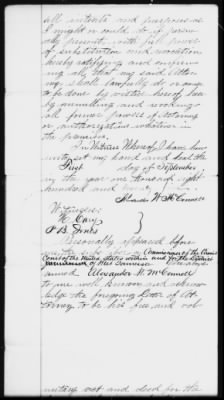 all intents and purposes as
I might or could do if person-
ally present, with full power
of substitution and revocation
hereby ratifying and confirm-
ing all that my said Attor-
ney shall lawfully do or cause
to be done by virtue hereof here-
by annulling and revoking
all former powers of attorney
or authorization whatever in
the premises.
In Witness Whereof I have here-
unto set my hand and seal the
First day of September
in the year one thousand eight
hundred and
Alexander W. McConnell
Witnesses:
P. B. Jones
Personally appeared before
me the
Court of the United States within and for the District
of West Tennessee
named Alexander W. McConnell
to me well known and acknow-
ledge the foregoing Power of At-
torney to be his free and vol-
untary act and deed for the